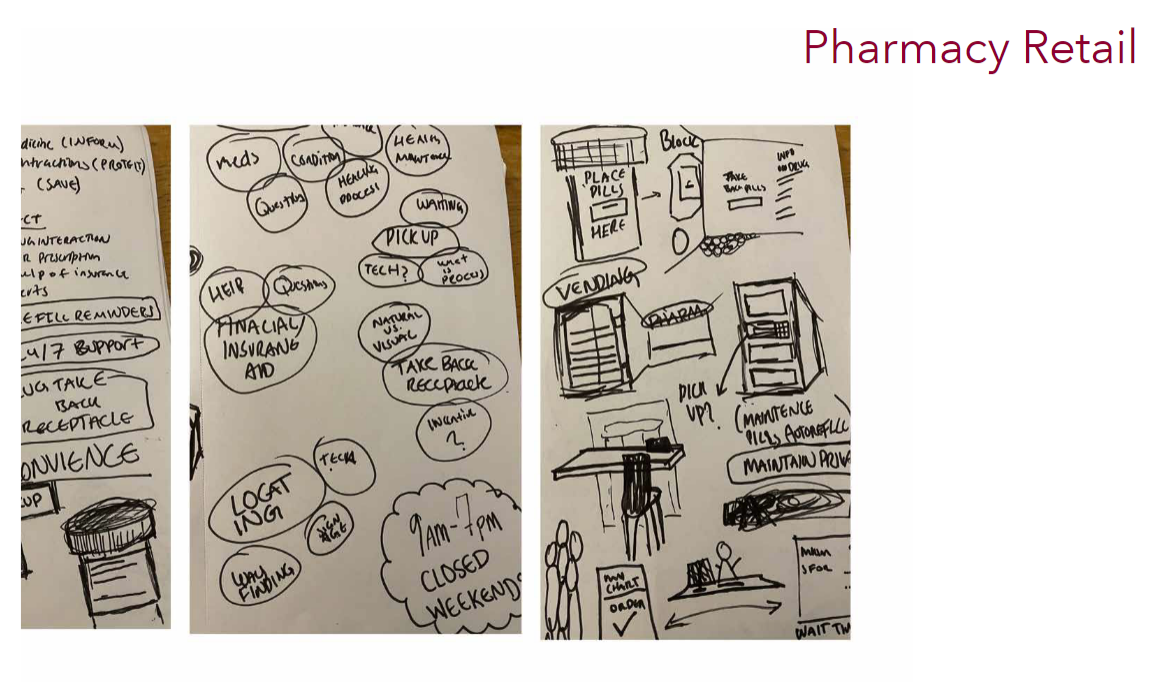 Pharmacy Retail
dicine (INFORM)
ntractions (PROTECT)
(SAVE)
CT
UG INTERACTION
R PRESCRIPTION
ulp of insurance
erts
EFILL REMINDERS
4/7 SUPPORT
UG TAKE
BACK
RECEPTACLE
ONVIENCE
CUP
MEDS
CONDITION
HEALTH
QUESTIONS
HEALING
PROCESS
WAITING
PICK UP
TECH?
WHAT
IS
PROCESS
HELP
QUESTIONS
FINACIAL/
INSURANE
AID
NATURAL
VS.
VISUAL
TAKE BACK
RECEPTACLE
?
LOCAT
ING
TECH
SIGN
AGE
WAY
FINDING
9AM-7PM
CLOSED
WEEKENDS
PLACE
PILLS
HERE
Block
TAKE
BACK PILLS
INFO
ON DRUG
VENDING
PHARMA
PICK
UP?
(MAINTENCE
PILLS, AUTOREFILL
MAINTAIN PRIV
CHART
ORDER
S FOR
WAIT TM